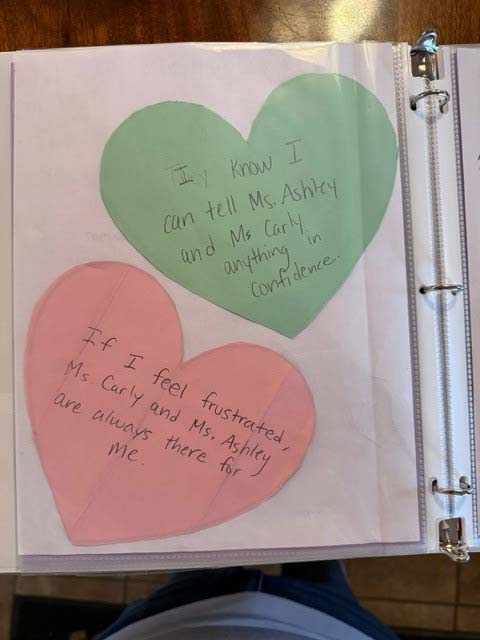 I, know I
can tell Ms. Ashley
and Ms Carly
anything in
confidence.
If I feel frustrated,
Ms Carly and Ms. Ashley
are always there for
me.